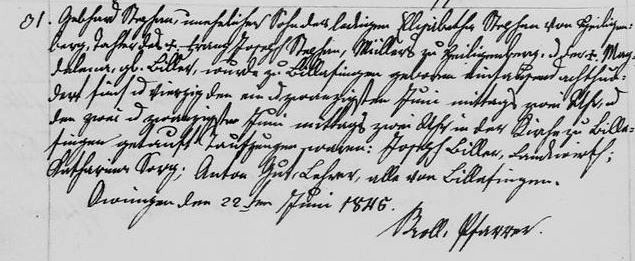 31. Gebhard Stephan, unehelicher Sohn der ledigen Elisabetha Stephan von Heiligen-
berg, Tochter des †. Franz Joseph Stephan, Müllers zu Heiligenberg. u der †. Mag-
dalena, gb. Biller, wurde zu Billafingen geboren Eintausend achthun-
dert fünf u vierzig den ein u zwanzigsten Juni mittags zwei Uhr, u
den zwei u zwanzigsten Juni mittags zwei Uhr in der Kirche zu Billa-
fingen getauft. Taufzeugen waren: Joseph Biller, Landwirth;
Katharina Sorg; Anton Gut, Lehrer, alle von Billafingen.
Owingen den 22ten Juni 1845.
Pfarrer.